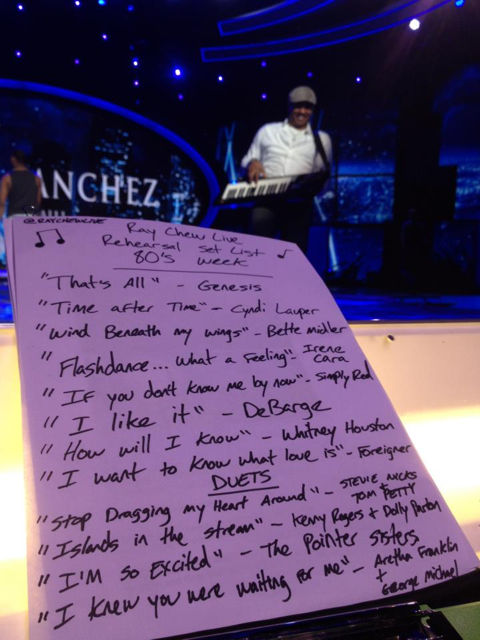 ANCHEZ
@RAYCHEWLIVE
Ray Chew Live
Rehearsal Set List
80's Week
"That's All" - Genesis
"Time after Time" - Cyndi Lauper
"Wind Beneath my wings" - Bette Midler
"Flashdance... What a Feeling" - Irene Cara
"If you don't know me by now" - Simply Red
"I like it" - DeBarge
"How will I know" - Whitney Houston
"I want to know what love is" - Foreigner
DUETS
"Stop Dragging my Heart Around" - STEVIE NICKS & TOM PETTY
"Islands in the stream" - Kenny Rogers + Dolly Parton
"I'm so Excited" - The Pointer Sisters
"I knew you were waiting for me" - Aretha Franklin + George Michael